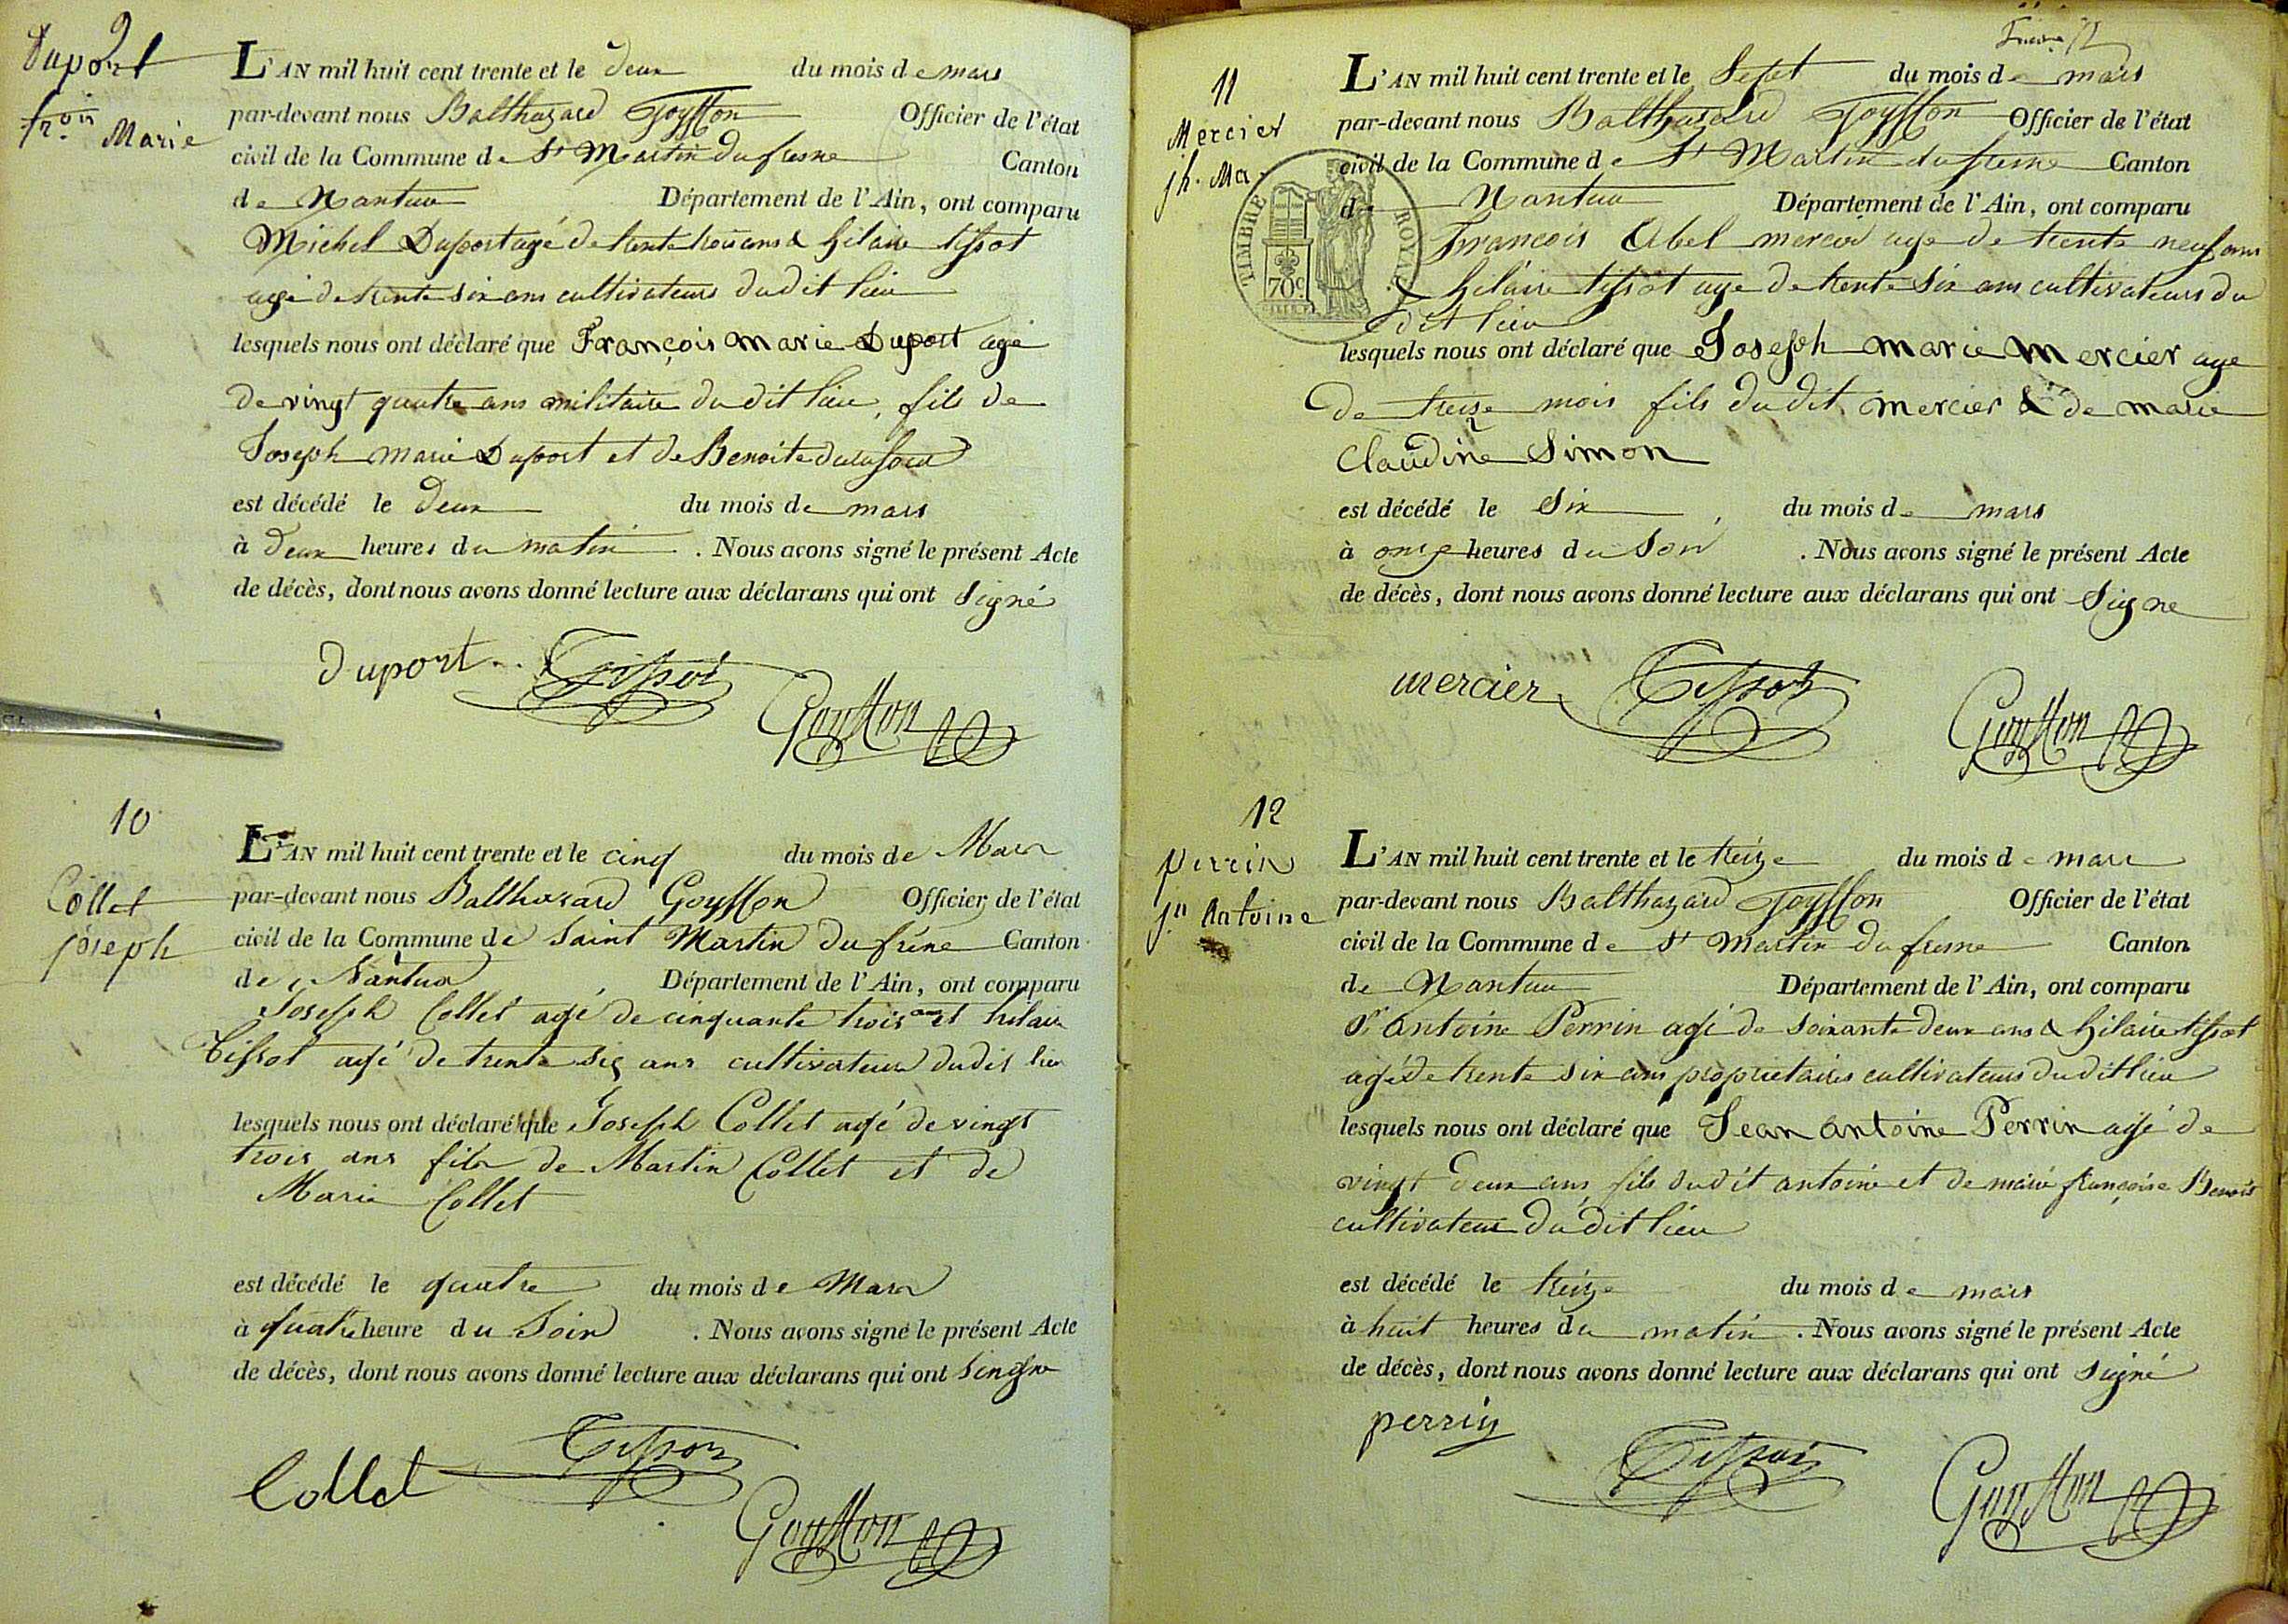 9
Duport
frois Marie
L'AN mil huit cent trente et le deux du mois de mars
par-devant nous Balthazard Goyffon Officier de l'état
civil de la Commune de St Martin du fresne Canton
de Nantua Département de l'Ain, ont comparu
Michel Duport agé de trente trois ans & hilaire tissot
agé de trente six ans cultivateurs du dit lieu
lesquels nous ont déclaré que François marie Duport agé
de vingt quatre ans militaire du dit lieu, fils de
Joseph marie Duport et de Benoite
est décédé le deux du mois de mars
à deux heures du matin. Nous avons signé le présent Acte
de décès, dont nous avons donné lecture aux déclarans qui ont signé
duport Tissot
Goyffon
10
Collet
joseph
L'AN mil huit cent trente et le cinq du mois de Mars
par-devant nous Balthazard Goyffon Officier de l'état
civil de la Commune de Saint Martin du frêne Canton
de Nantua Département de l'Ain, ont comparu
Joseph Collet agé de cinquante trois ans et hilaire
Tissot agé de trente six ans cultivateurs dudit lieu
lesquels nous ont déclaré que Joseph Collet agé de vingt
trois ans fils de Martin Collet et de
Marie Collet
est décédé le quatre du mois de Mars
à quatre heure du Soir. Nous avons signé le présent Acte
de décès, dont nous avons donné lecture aux déclarans qui ont
Collet Tissot
Goyffon
11
Mercier
jh. Ma.
TIMBRE ROYAL
70c
L'AN mil huit cent trente et le Sept du mois de mars
par-devant nous Balthazard Goyffon Officier de l'état
civil de la Commune de St Martin du fresne Canton
de Nantua Département de l'Ain, ont comparu
François Abel mercier age de trente neuf ans
& hilaire tissot age de trente six ans cultivateurs du
dit lieu
lesquels nous ont déclaré que Joseph marie mercier age
de treize mois fils du dit mercier & de marie
Claudine Simon
est décédé le Six du mois de mars
à onze heures du Soir. Nous avons signé le présent Acte
de décès, dont nous avons donné lecture aux déclarans qui ont Signe
mercier Tissot
Goyffon
12
perrin
jn Antoine
L'AN mil huit cent trente et le treize du mois de mars
par-devant nous Balthazard Goyffon Officier de l'état
civil de la Commune de St Martin du fresne Canton
de Nantua Département de l'Ain, ont comparu
antoine Perrin agé de soixante deux ans & hilaire tissot
agé de trente six ans proprietaires cultivateurs du dit lieu
lesquels nous ont déclaré que Jean antoine Perrin agé de
vingt deux ans fils dudit antoine et de marie françoise Benoit
cultivateur du dit lieu
est décédé le treize du mois de mars
à huit heures du matin. Nous avons signé le présent Acte
de décès, dont nous avons donné lecture aux déclarans qui ont signé
perrin
Tissot
Goyffon